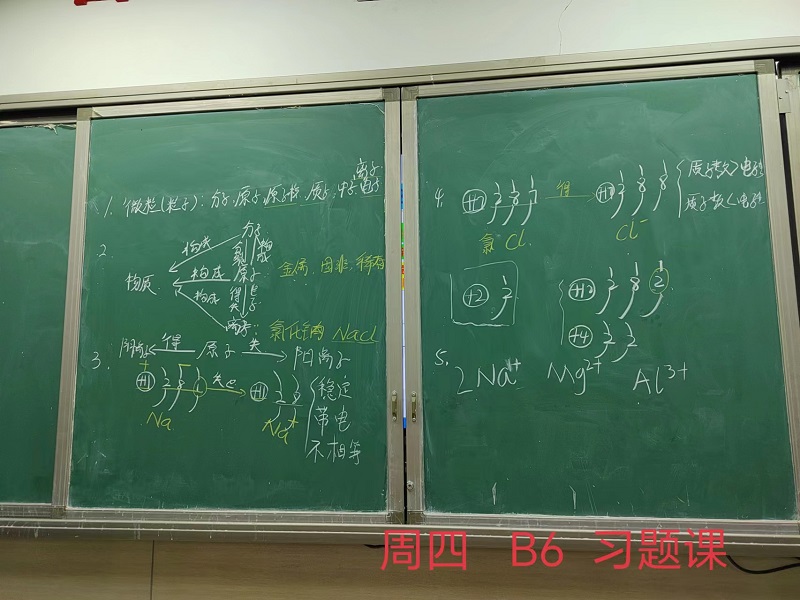 1. 微粒(粒子):分子.原子.原子核.质子.中子.电子
离子
2.
分子
构成
物质
构成
原子
构成
得失电子
离子:氯化钠 NaCl
金属、固非、稀有
3.
阴离子 得 原子 失 阳离子
+11 2 8 1 失e +11 2 8
Na
Na+
稳定
带电
不相等
4.
+17 2 8 7 得 +17 2 8 8
氯 Cl
Cl-
质子数>电子
质子数<电子
+2 2
+12 2 8 2
+4 2 2
5.
2Na+ Mg2+ Al3+
周四 B6 习题课